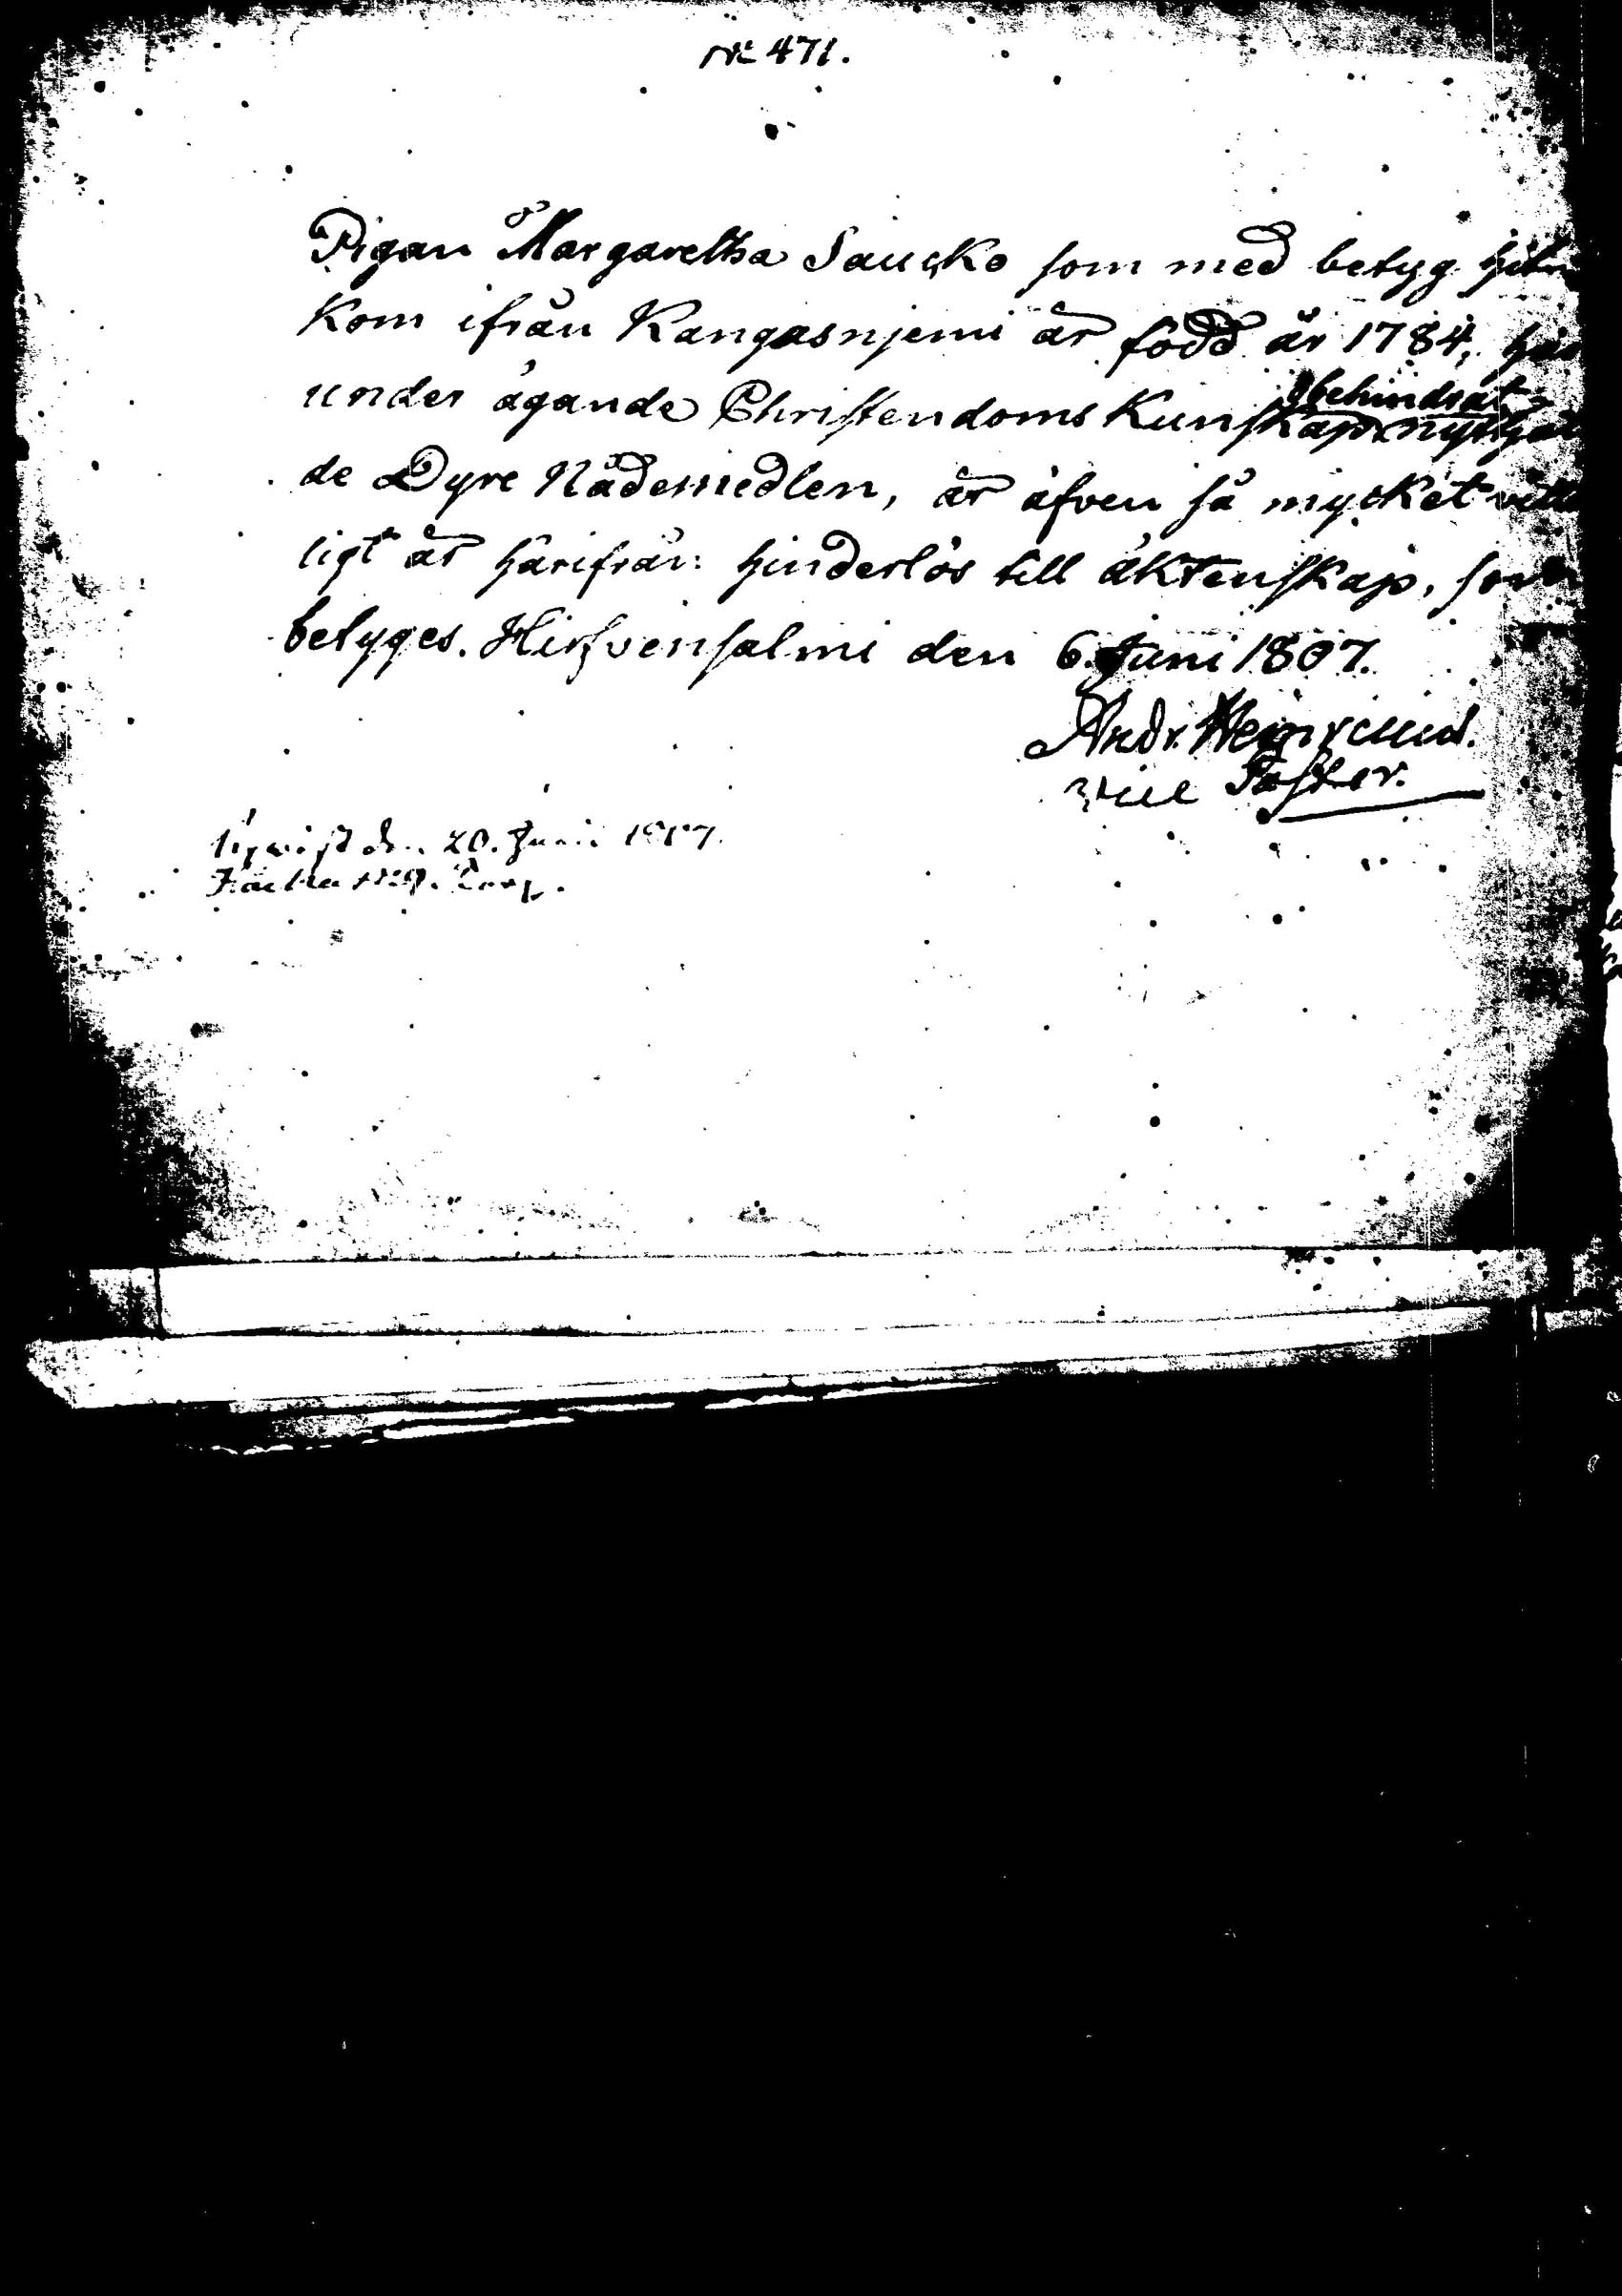 No 471.
Pigan Margaretha Saucko som med betyg hit
kom ifrån Kangasnjemi är född år 1784, här
under ägande Christendoms Kunskap obehindrat nyttjat
de Dyre Nådemedlen, är äfven så mycket vitter
ligt är härifrån hinderlös till äktenskap, som
betyges. Hirfvensalmi den 6. Juni 1807.
Andr.
Vice Pastor.
Upvist den 20. Juni 1807.